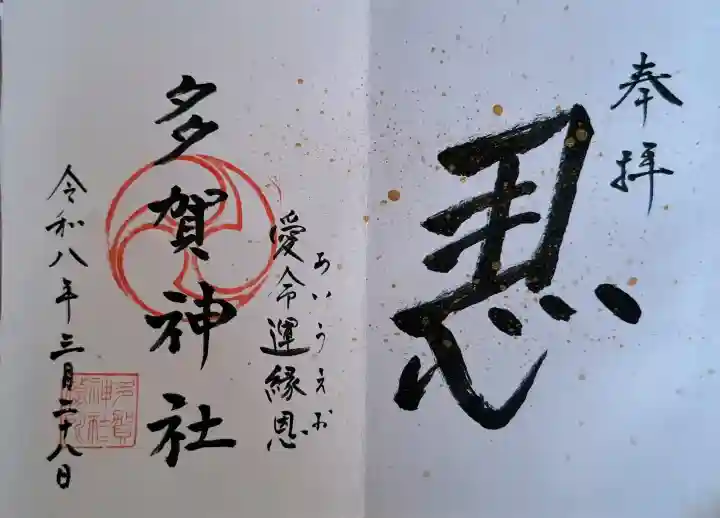 奉拝
恩
あいうえお
愛命運縁恩
多賀神社
令和八年三月二十八日
多賀神社